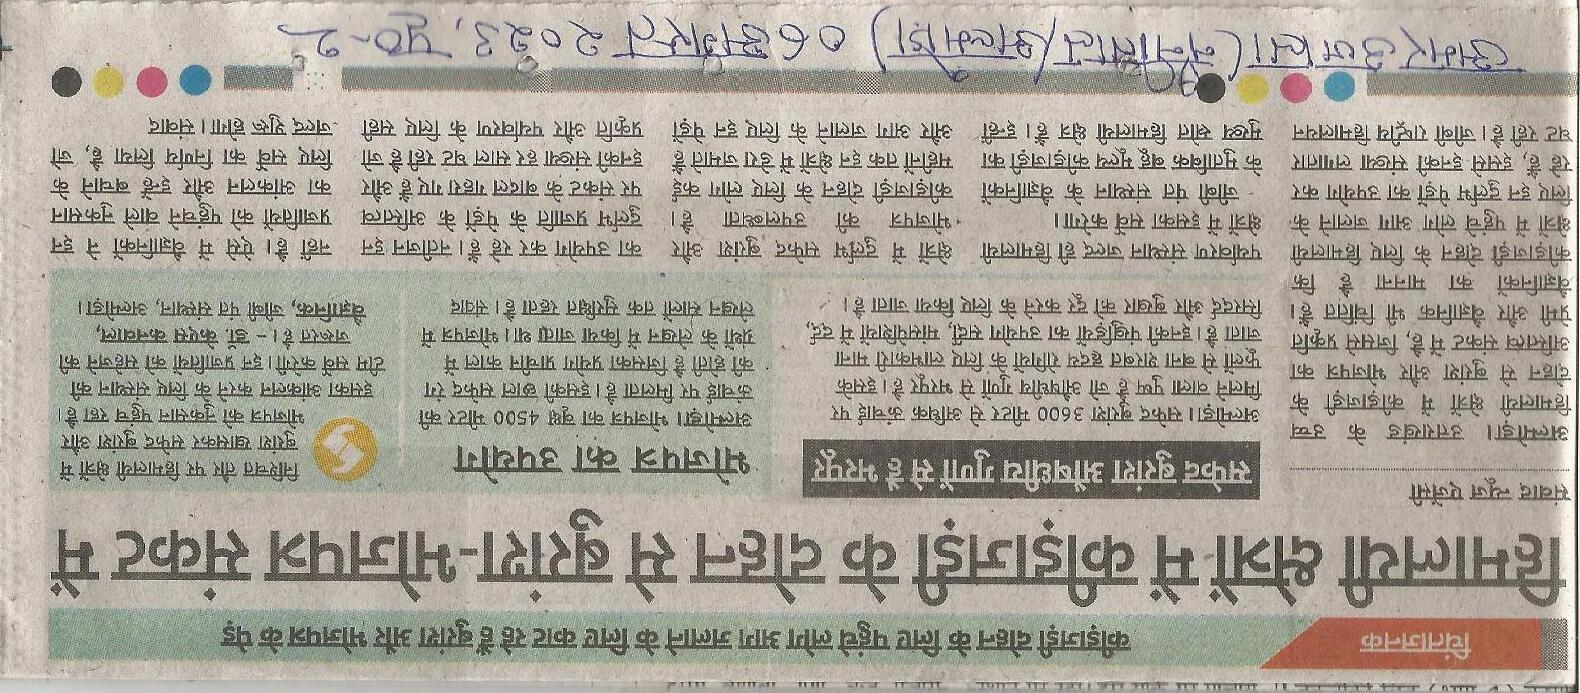 चिंताजनक
कीड़ाजड़ी दोहन के लिए पहुंचे लोग आग जलाने के लिए काट रहे हैं बुरांश और भोजपत्र के पेड़
हिमालयी क्षेत्रों में कीड़ाजड़ी के दोहन से बुरांश-भोजपत्र संकट में
संवाद न्यूज एजेंसी
अल्मोड़ा। उत्तराखंड के उच्च
हिमालयी क्षेत्रों में कीड़ाजड़ी के
दोहन से बुरांश और भोजपत्र का
अस्तित्व संकट में है, जिससे प्रकृति
प्रेमी और वैज्ञानिक भी चिंतित हैं।
वैज्ञानिकों का मानना है कि
कीड़ाजड़ी दोहन के लिए हिमालयी
क्षेत्रों में पहुंचे लोग आग जलाने के
लिए इन दुर्लभ पेड़ों का उपयोग कर
रहे हैं, इससे इनकी संख्या लगातार
घट रही है। जीबी राष्ट्रीय हिमालयन
पर्यावरण संस्थान जल्द ही हिमालयी
क्षेत्रों में इसका सर्वे करेगा।
जीबी पंत संस्थान के वैज्ञानिकों
के मुताबिक बहु मूल्य कीड़ाजड़ी का
मुख्य स्रोत हिमालयी क्षेत्र हैं। इन्हीं
क्षेत्रों में दुर्लभ सफेद बुरांश और
भोजपत्र की उपलब्धता है।
कीड़ाजड़ी दोहन के लिए लोग कई
महीनों तक इन क्षेत्रों में डेरा जमाते हैं
और आग जलाने के लिए इन पेड़ों
का उपयोग कर रहे हैं। नतीजन इन
दुर्लभ प्रजाति के पेड़ों के अस्तित्व
पर संकट के बादल गहरा गए हैं और
इनकी संख्या हर साल घट रही है जो
प्रकृति और पर्यावरण के लिए सही
नहीं है। ऐसे में वैज्ञानिकों ने इन
प्रजातियों को पहुंचने वाले नुकसान
का आंकलन और इन्हें बचाने के
लिए सर्वे का निर्णय लिया है, जो
जल्द शुरू होगा। संवाद
सफेद बुरांश औषधीय गुणों से है भरपूर
अल्मोड़ा। सफेद बुरांश 3600 मीटर से अधिक ऊंचाई पर
मिलने वाला पुष्प है जो औषधीय गुणों से भरपूर है। इसके
फूलों से बना शरबत हृदय रोगियों के लिए लाभकारी माना
जाता है। इनकी पंखुड़ियों का उपयोग सर्दी, मांसपेशियों में दर्द,
सिरदर्द और बुखार को दूर करने के लिए किया जाता है।
भोजपत्र का उपयोग
अल्मोड़ा। भोजपत्र का वृक्ष 4500 मीटर की
ऊंचाई पर मिलता है। इसकी छाल सफेद रंग
की होती है जिसका प्रयोग प्राचीन काल में
ग्रंथों के लेखन में किया जाता था। भोजपत्र में
लेखन सालों तक सुरक्षित रहता है। संवाद
निश्चित तौर पर हिमालयी क्षेत्रों में
बुरांश खासकर सफेद बुरांश और
भोजपत्र को नुकसान पहुंच रहा है।
इसका आंकलन करने के लिए संस्थान की
टीम सर्वे करेगी। इन प्रजातियों को सहेजने की
जरूरत है। - डॉ. केएस कनवाल,
वैज्ञानिक, जीबी पंत संस्थान, अल्मोड़ा।
अमर उजाला (नैनीताल/अल्मोड़ा) 06 अगस्त 2023, पृष्ठ-2